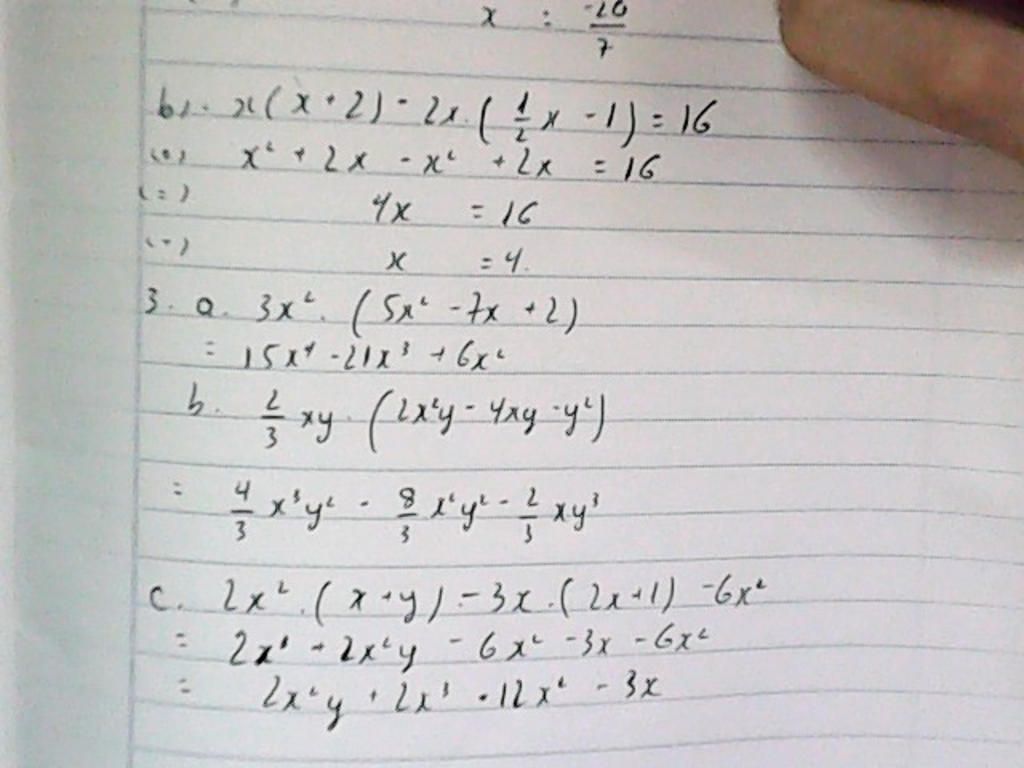 x = -20/7
b). x(x + 2) - 2x.(1/2 x - 1) = 16
(=) x² + 2x - x² + 2x = 16
(=) 4x = 16
(=) x = 4.
3. a. 3x². (5x² - 7x + 2)
= 15x⁴ - 21x³ + 6x²
b. 2/3 xy. (2x²y - 4xy - y²)
= 4/3 x³y² - 8/3 x²y² - 2/3 xy³
c. 2x².(x + y) - 3x.(2x + 1) - 6x²
= 2x³ + 2x²y - 6x² - 3x - 6x²
= 2x²y + 2x³ - 12x² - 3x